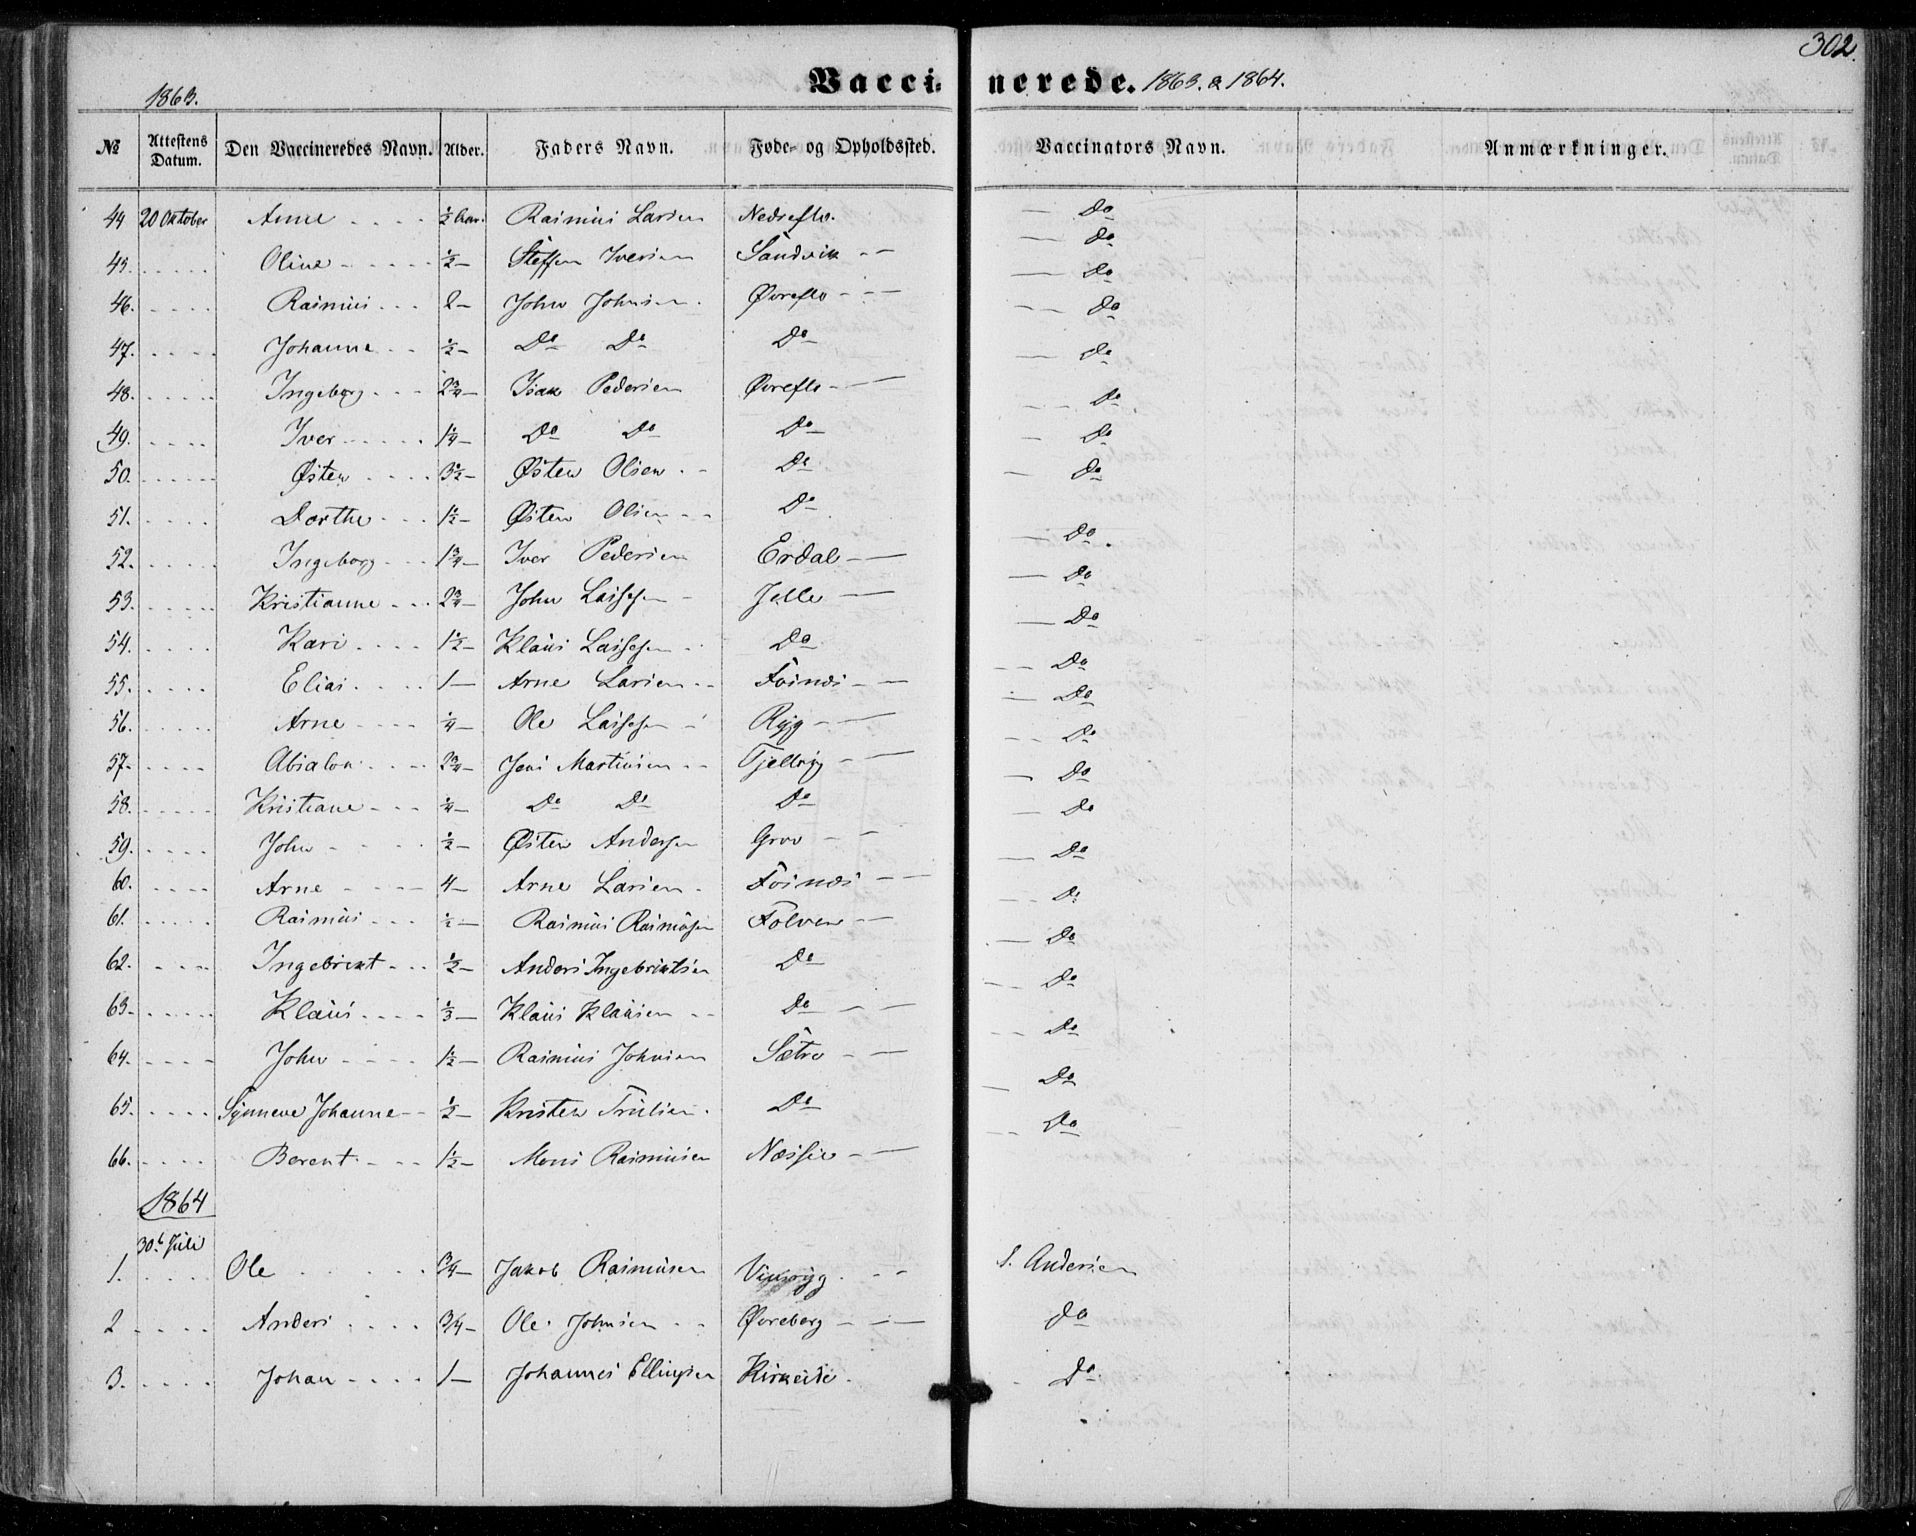 302.
1863.
Vaccinerede. 1863. & 1864.
№ Attestens Datum. Den Vaccineredes Navn. Alder. Faders Navn. Føde- og Opholdssted. Vaccinators Navn. Anmærkninger.
44 20 Oktober Anne ½ Aar. Rasmus Larsen Nedreflo. Do
45. Oline ½ Steffen Iversen Sandvik Do
46. Rasmus 2 John Johnsen Øvreflo Do
47. Johanne ½ Do Do Do Do
48. Ingeborg 2¾ Isak Pedersen Øvreflo Do
49. Iver 1¼ Do Do Do Do
50. Østen 3½ Østen Olsen Do Do
51. Dorthe 1½ Østen Olsen Do Do
52. Ingeborg 1¾ Iver Pedersen Erdal Do
53. Kristianne 2¾ John Lassesen Jelle Do
54. Kari 1½ Klaus Lassesen Do Do
55. Elias 1 Arne Larsen Fosnæs Do
56. Arne ¼ Ole Lassesen Ryg Do
57. Absalon 2¾ Jens Martinsen Tjellryg Do
58. Kristiane ¼ Do Do Do Do
59. John ½ Østen Andersen Grov Do
60. Arne 4 Arne Larsen Fosnæs Do
61. Rasmus ½ Rasmus Rasmusen Folven Do
62. Ingebrikt ½ Anders Ingebriktsen Do Do
63. Klaus ⅓ Klaus Klausen Do Do
64. John 1½ Rasmus Johnsen Sætre Do
65. Synneve Johanne ½ Kristen Trulsen Do Do
66. Berent 1½ Mons Rasmusen Næsse Do
1864
30t Juli
1. Ole ¾ Jakob Rasmusen S. Andersen
2 Anders ¾ Ole Johnsen Øvreberg do
3. Johan 1 Johannes Ellingsen Kirkeide. Do